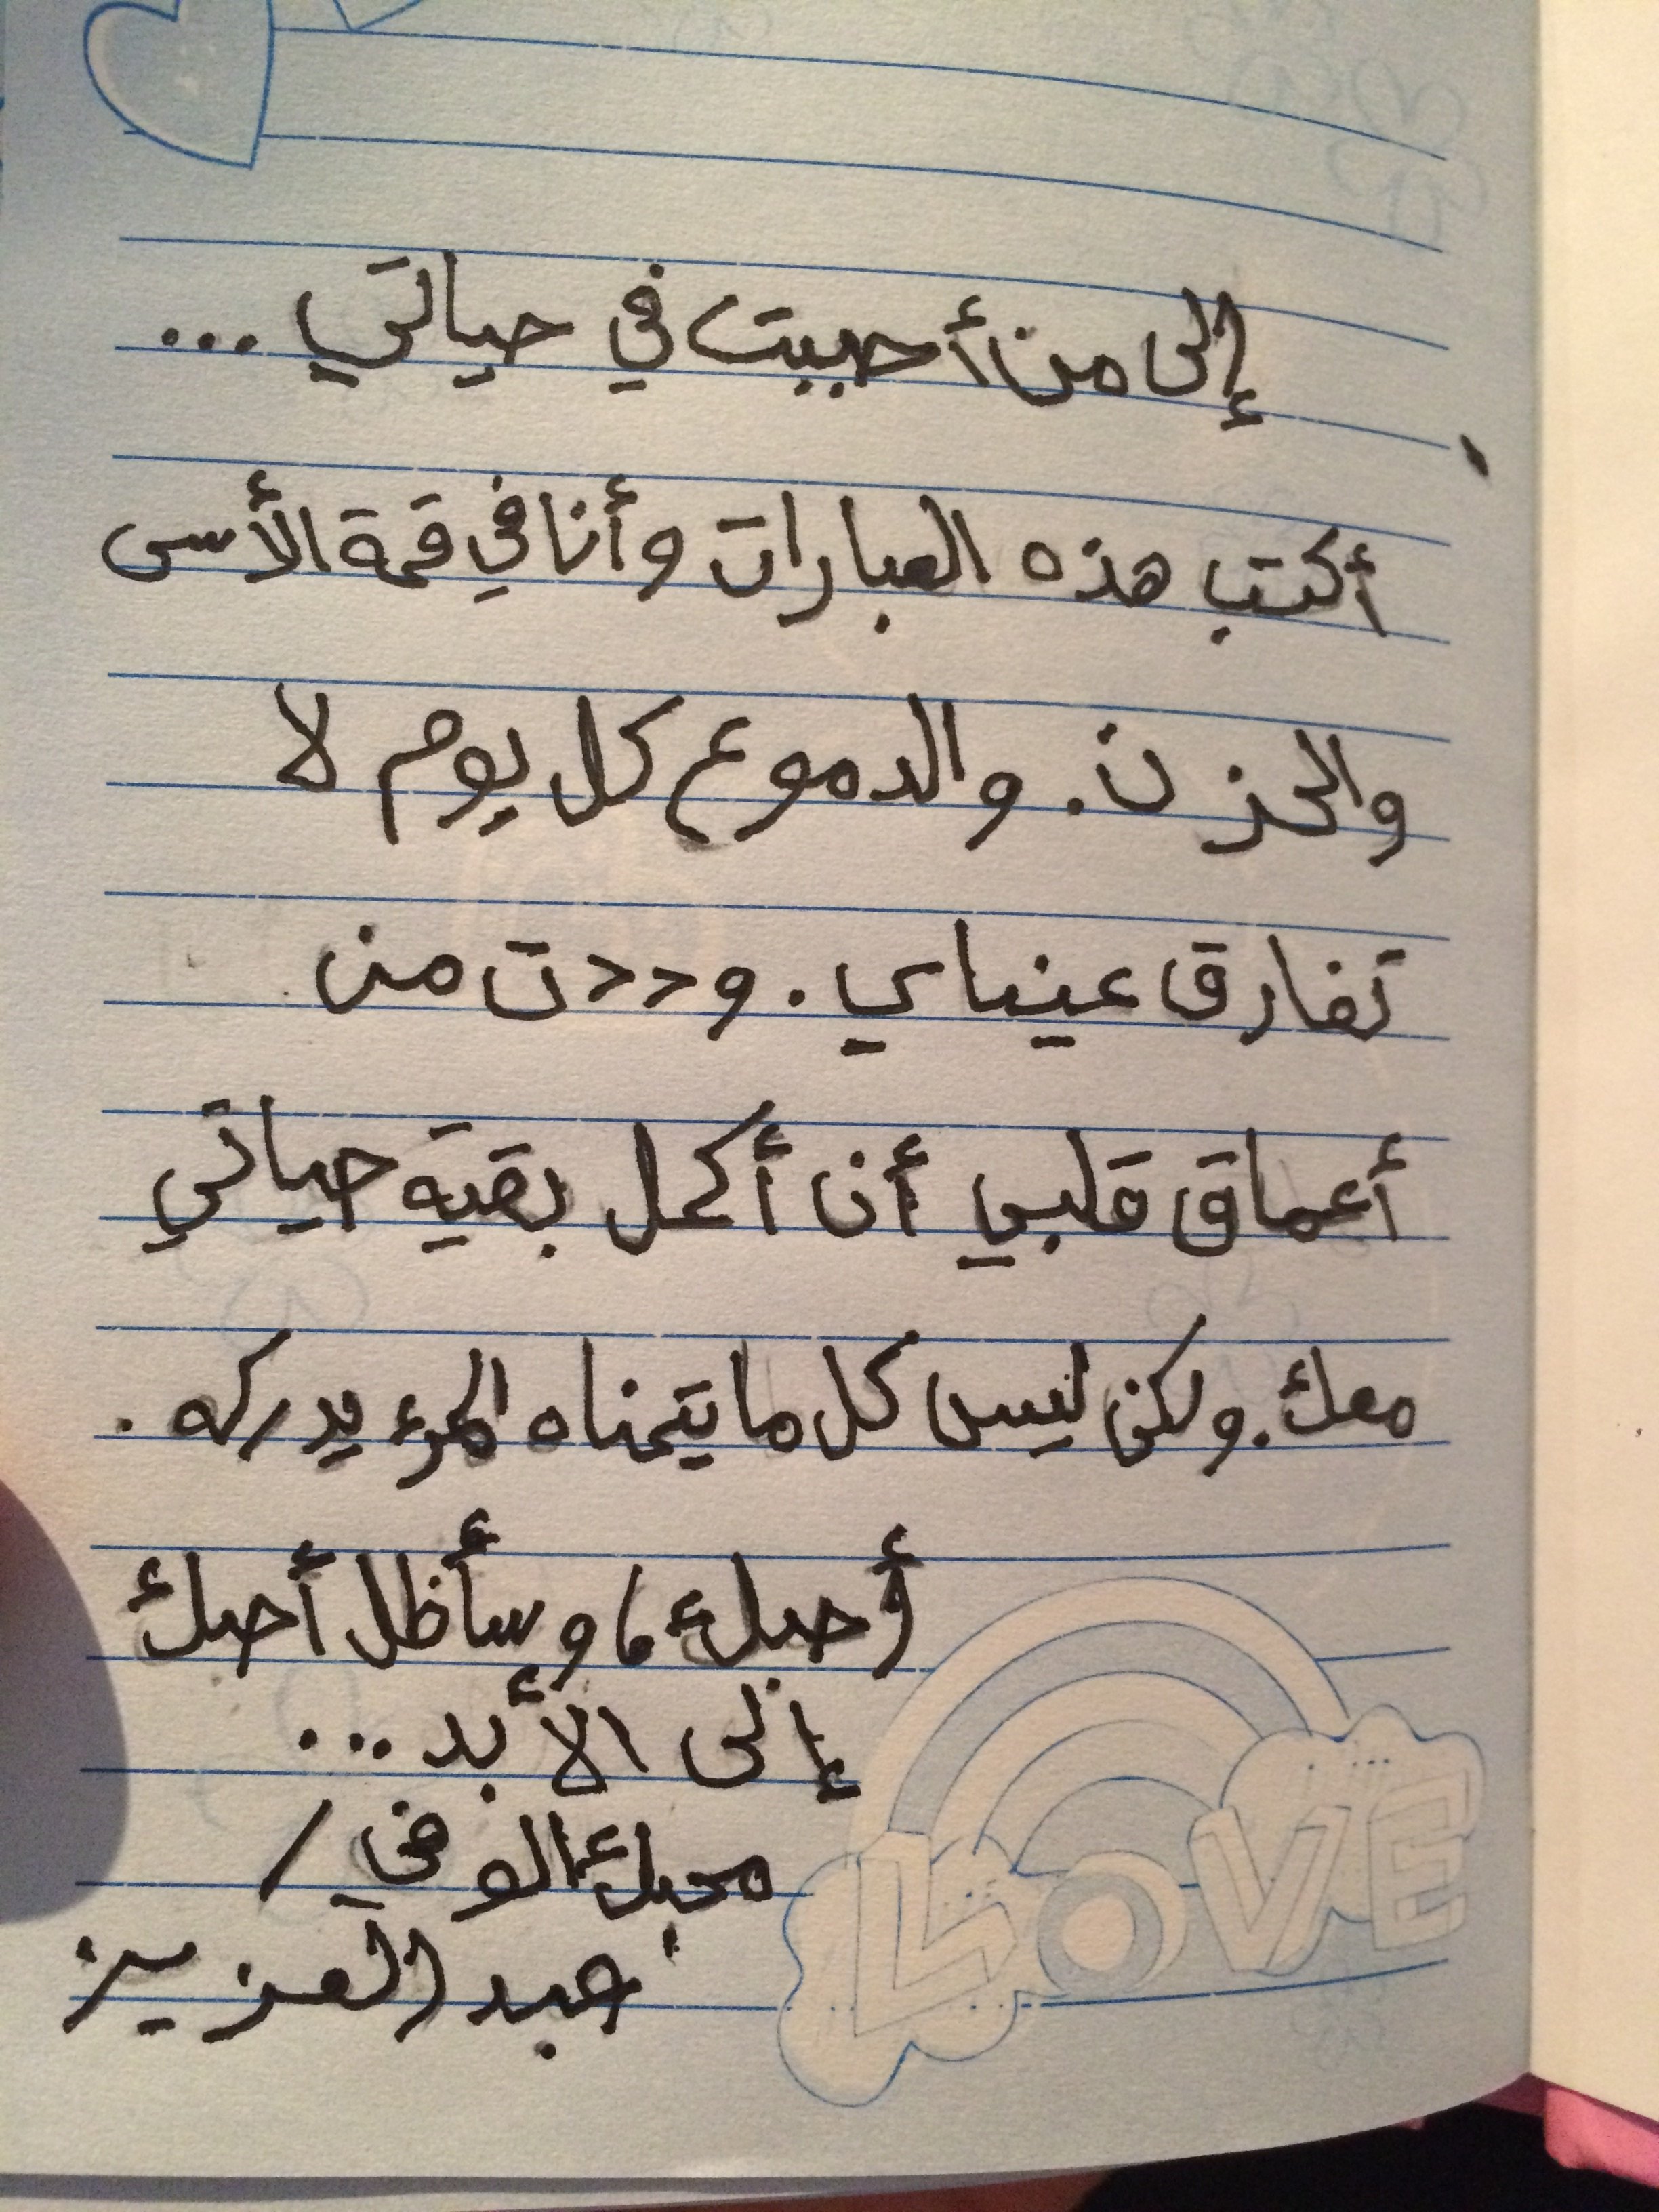 إلى من أحببت في حياتي ...
أكتب هذه العبارات وأنا في قمة الأسى
والحزن. والدموع كل يوم لا
تفارق عيناي. وددت من
أعماق قلبي أن أكمل بقية حياتي
معك. ولكن ليس كل ما يتمناه المرء يدركه.
أحبك، وسأظل أحبك
إلى الأبد ...
محبك الوفي /
عبد العزيز
LOVE